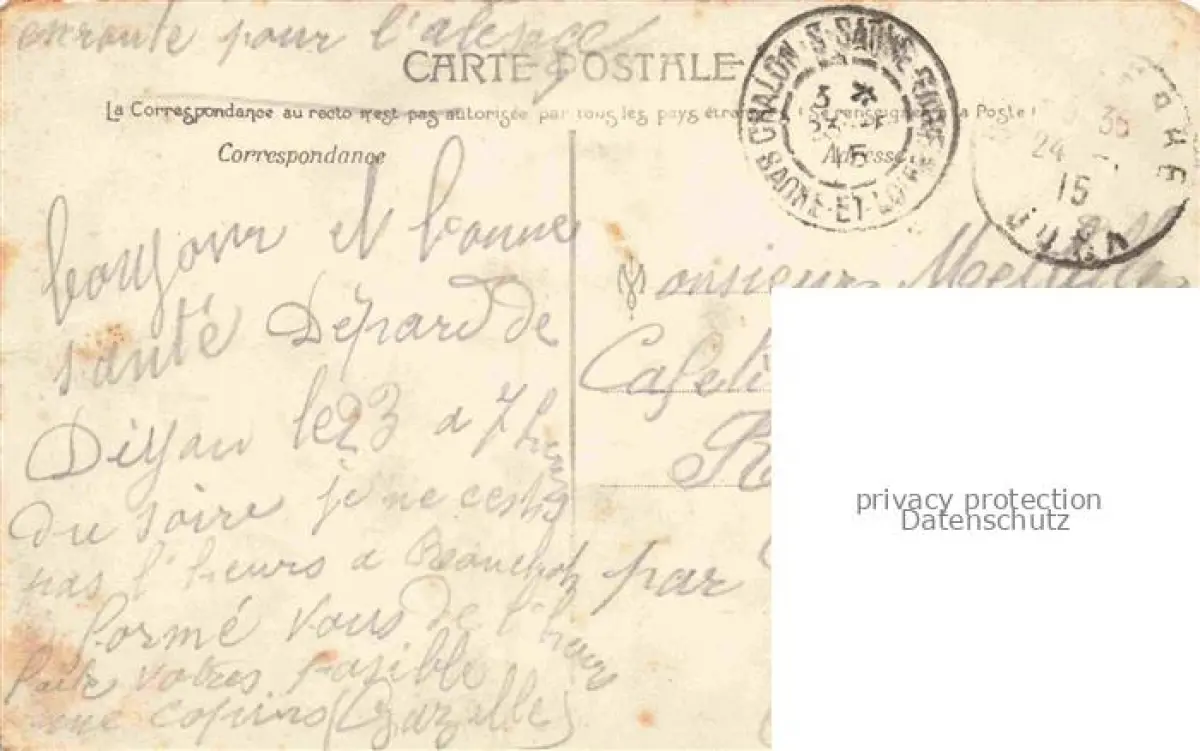 en route pour l'alesace
CARTE POSTALE
La Correspondance au recto n'est pas autorisée par tous les pays étran (Se renseigner a la Poste)
Correspondance
Adresse
CHALON-S-SAÔNE GARE
3 *
23
15
SAONE-ET-LOIRE
35
24
15
JURA
bonjour et bonne
santé Dépard de
Dijau le 23 a 7 heu
Du soire je ne
pas l'heurs a Ranchot
formé vous de l'heur
faite votres posible
une copins (Gazelle)
Monsieur
Cafeti
R
par
privacy protection
Datenschutz